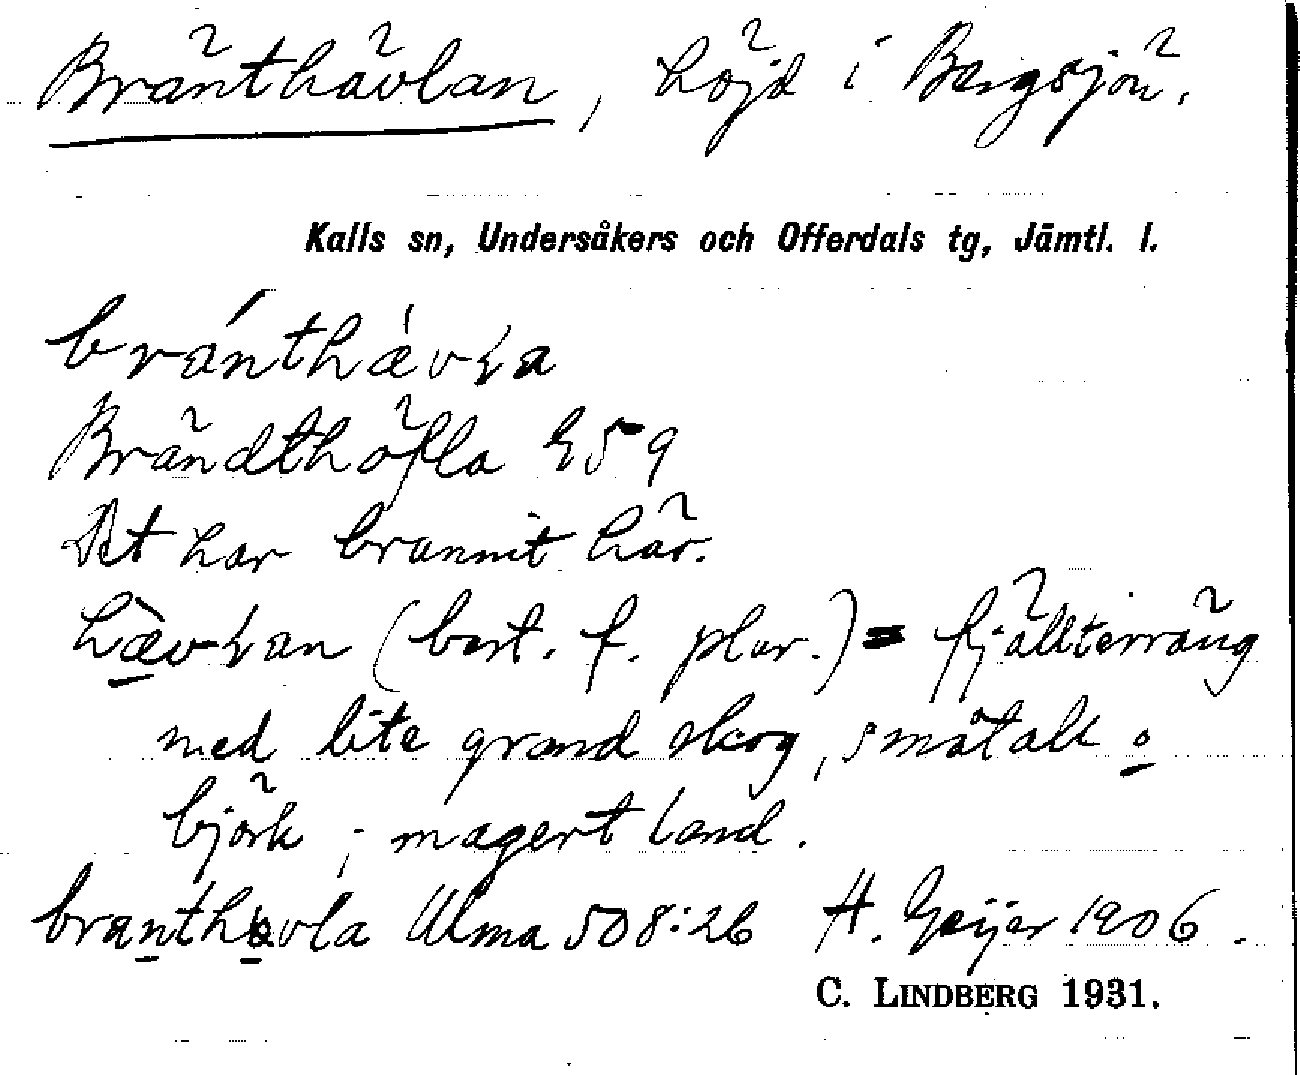 Bränthävlan, höjd i Bergsjön.
Kalls sn, Undersåkers och Offerdals tg, Jämtl. l.
Brändthöfla E59
Det har brunnit här.
(best. f. plur.) = fjällterräng
med lite grand skog, småtall o
björk; magert land.
Ulma 508:26 H. Geijer 1906.
C. LINDBERG 1931.